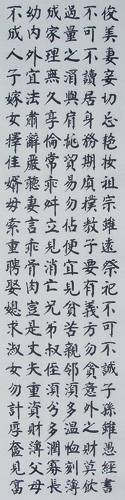 俊美妻妾切忌艷妝祖宗雖遠祭祀不可不誠子孫雖愚經書
不可不讀居身務期質樸教子要有義方勿貪意外之財莫飲
過量之酒與肩挑貿易勿佔便宜見貧苦親鄰須多溫恤刻薄
成家理無久享倫常乖舛立見消亡兄弟叔侄須分多潤寡長
幼內外宜法肅辭嚴聽婦言乖骨肉豈是丈夫重資財薄父母
不成人子嫁女擇佳婿毋索重聘娶媳求淑女勿計厚奩見富